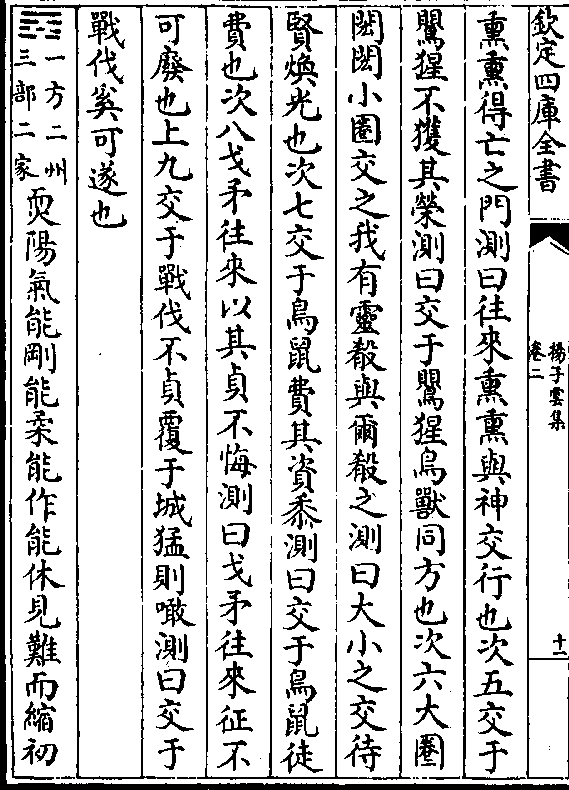 欽定四庫全書
揚子雲集
卷二
十二
熏熏得亡之門測曰往來熏熏與神交行也次五交于
鸎猩不獲其榮測曰交于鸎猩鳥獸同方也次六大圈
閎閎小圈交之我有靈殽與爾殽之測曰大小之交待
賢煥光也次七交于鳥鼠費其資黍測曰交于鳥鼠徒
費也次八戈矛往來以其貞不悔測曰戈矛往來征不
可廢也上九交于戰伐不貞覆于城猛則噉測曰交于
戰伐奚可遂也
一方二州
三部二家
耎陽氣能剛能柔能作能休見難而縮初